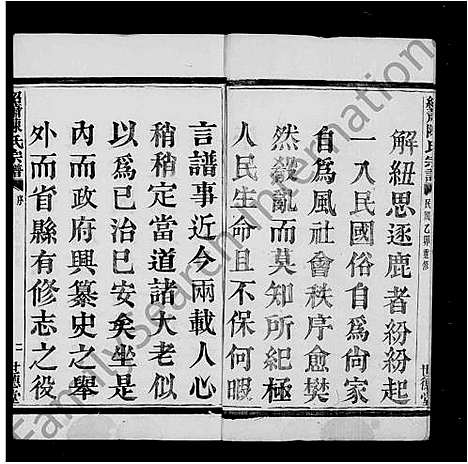 紹蕭陳氏宗譜
民國乙卯重修
世德堂
解紐思逐鹿者紛紛起
一入民國俗自為尙家
自為風社會秩序愈樊
然殽亂而莫知所紀極
人民生命且不保何暇
言譜事近今兩載人心
稍稍定當道諸大老似
以為已治已安矣坐是
內而政府興纂史之舉
外而省縣有修志之役
紹蕭陳氏宗譜
序
二
世德堂
FamilySearch International